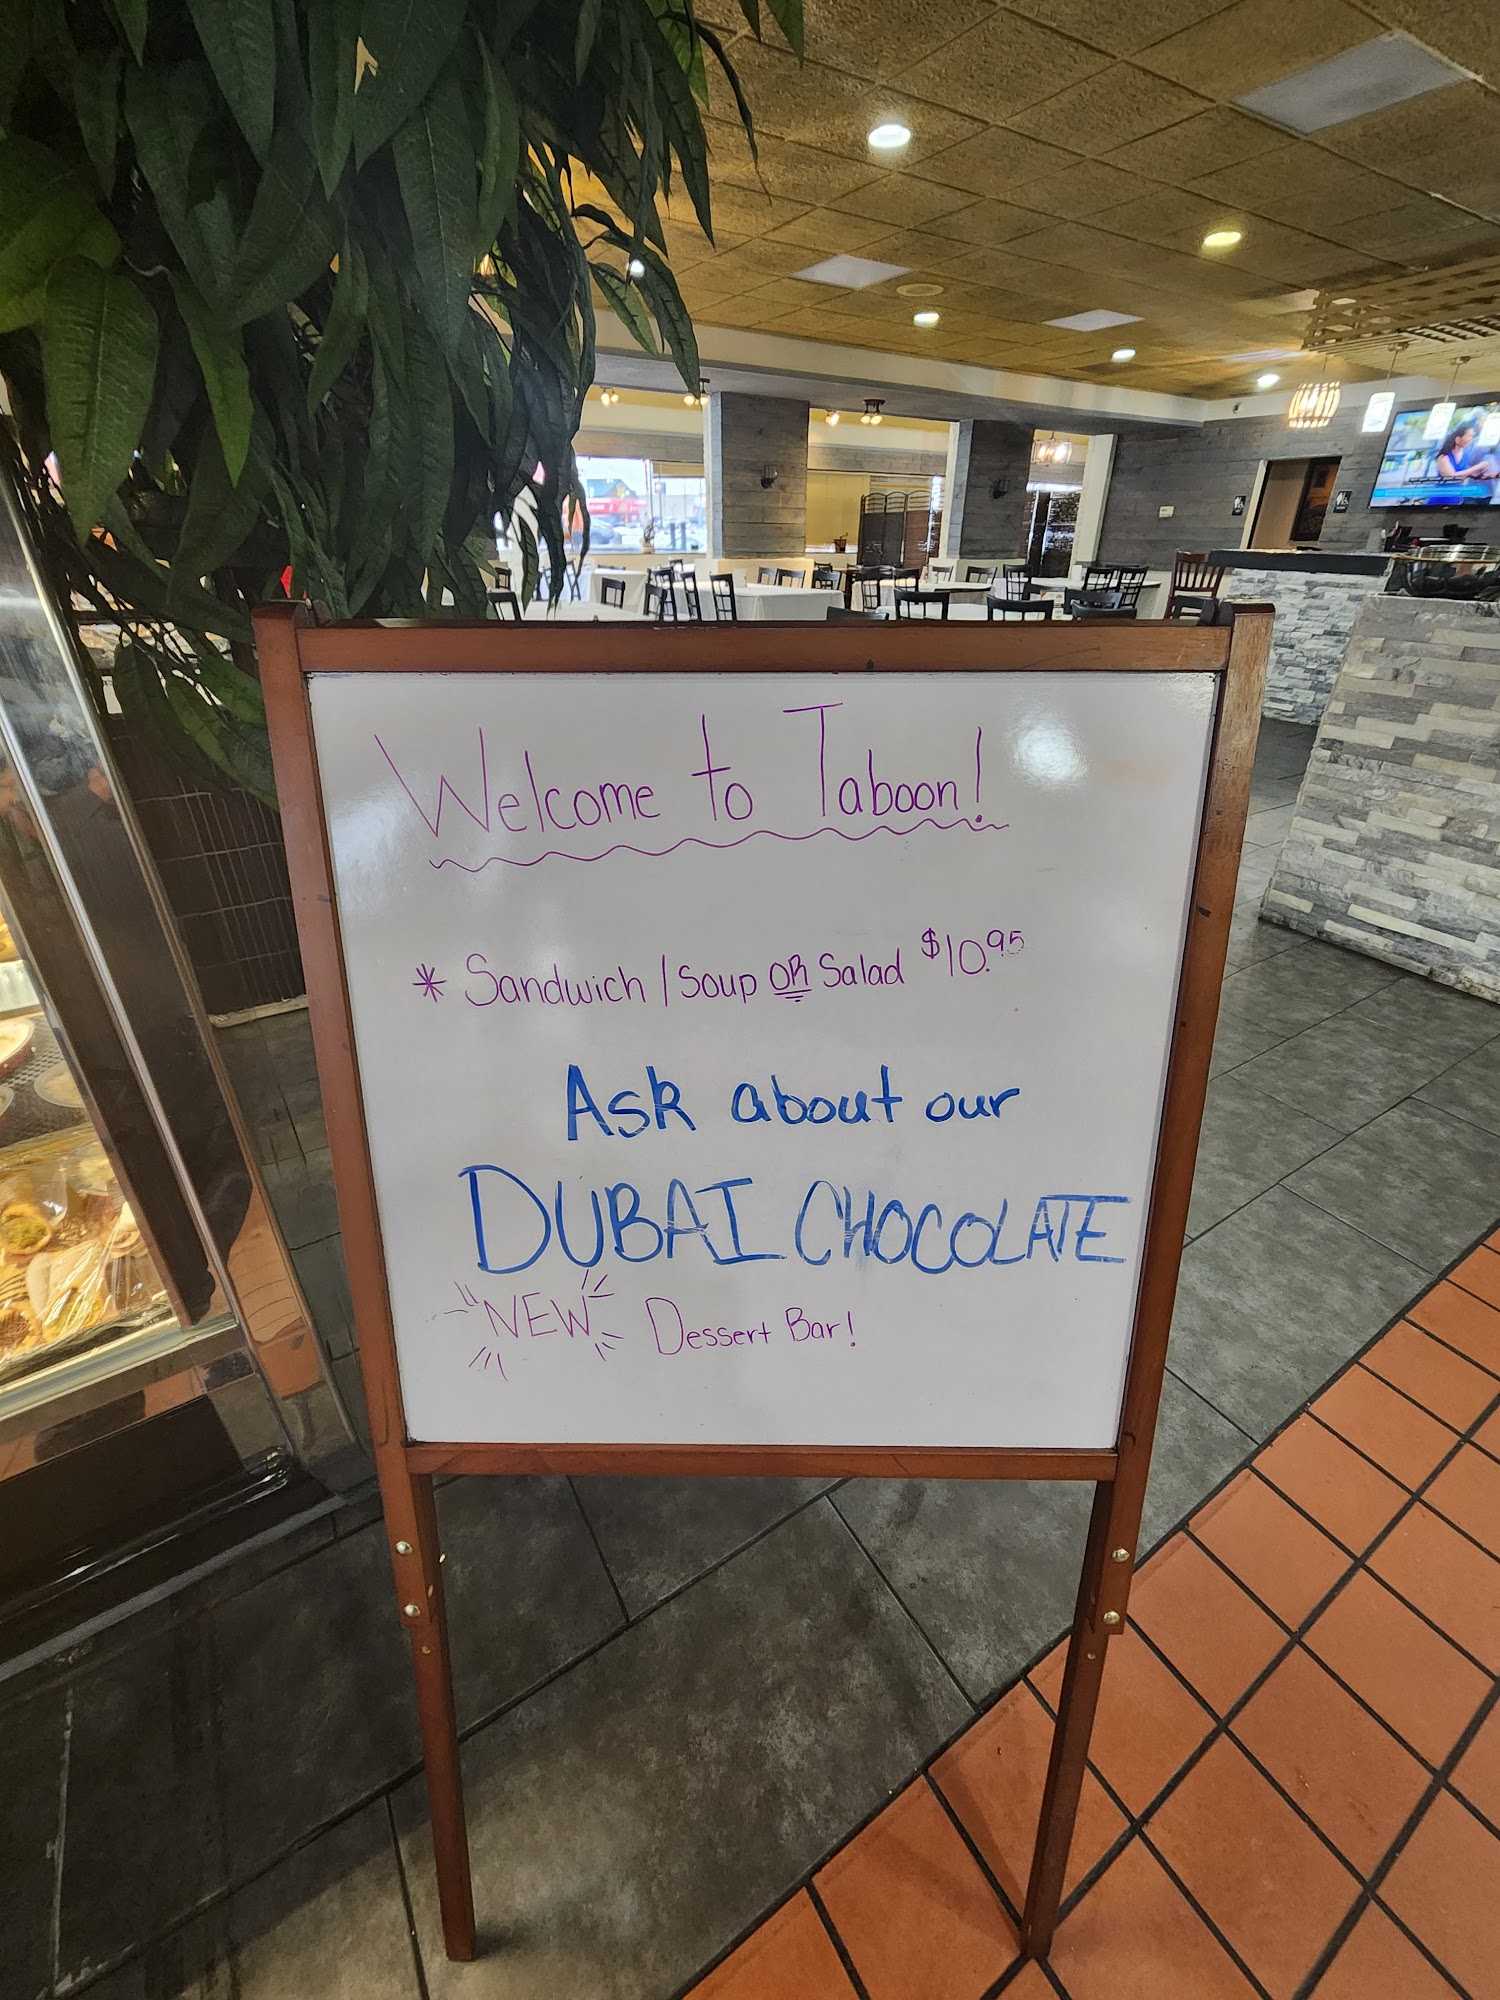 Welcome to Taboon!
* Sandwich / Soup OR Salad $10.95
Ask about our
DUBAI CHOCOLATE
NEW Dessert Bar!